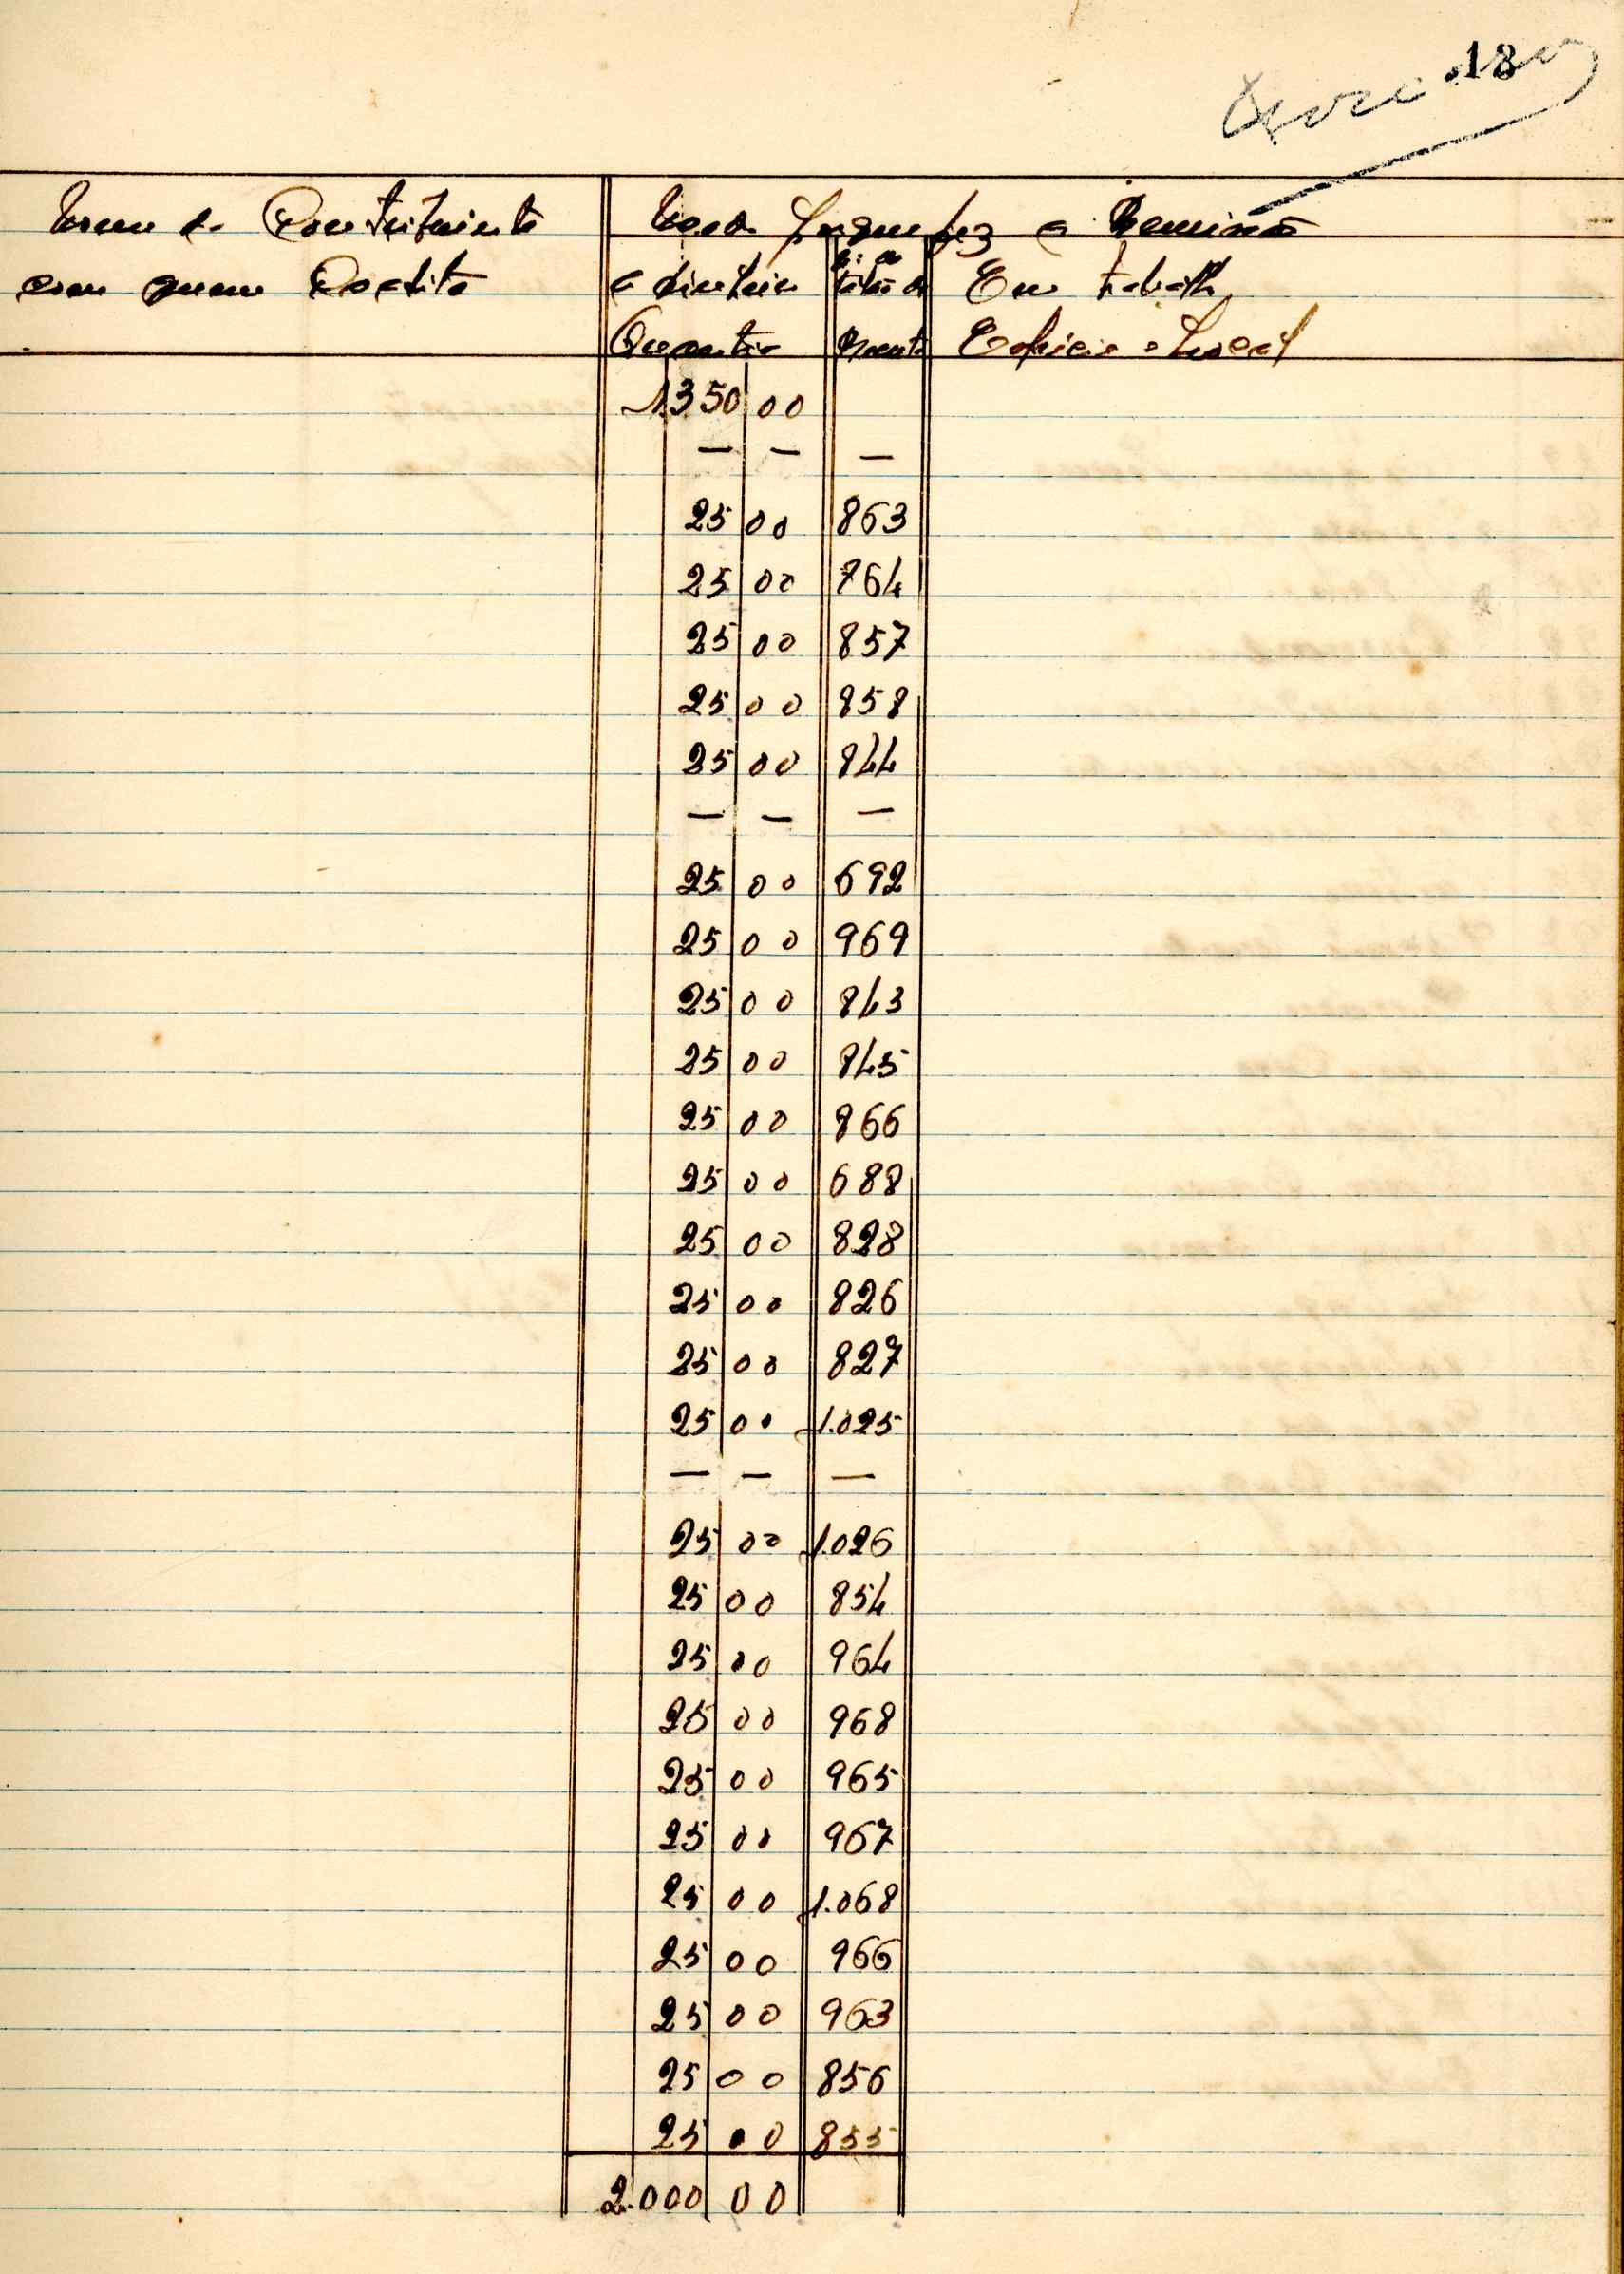 13
Nome do Constituinte
com quem Coabita
Modo porque fez a Remissão
a dinheiro
Nº do
talão da
Em trabalho
Quantia
Receita
Espécie e Local
1.350 00
— — —
25 00 863
25 00 764
25 00 857
25 00 858
25 00 844
— — —
25 00 692
25 00 969
25 00 843
25 00 845
25 00 866
25 00 688
25 00 828
25 00 826
25 00 827
25 00 1.025
— — —
25 00 1.026
25 00 854
25 00 964
25 00 968
25 00 965
25 00 967
25 00 1.068
25 00 966
25 00 963
25 00 856
25 00 855
2.000 00